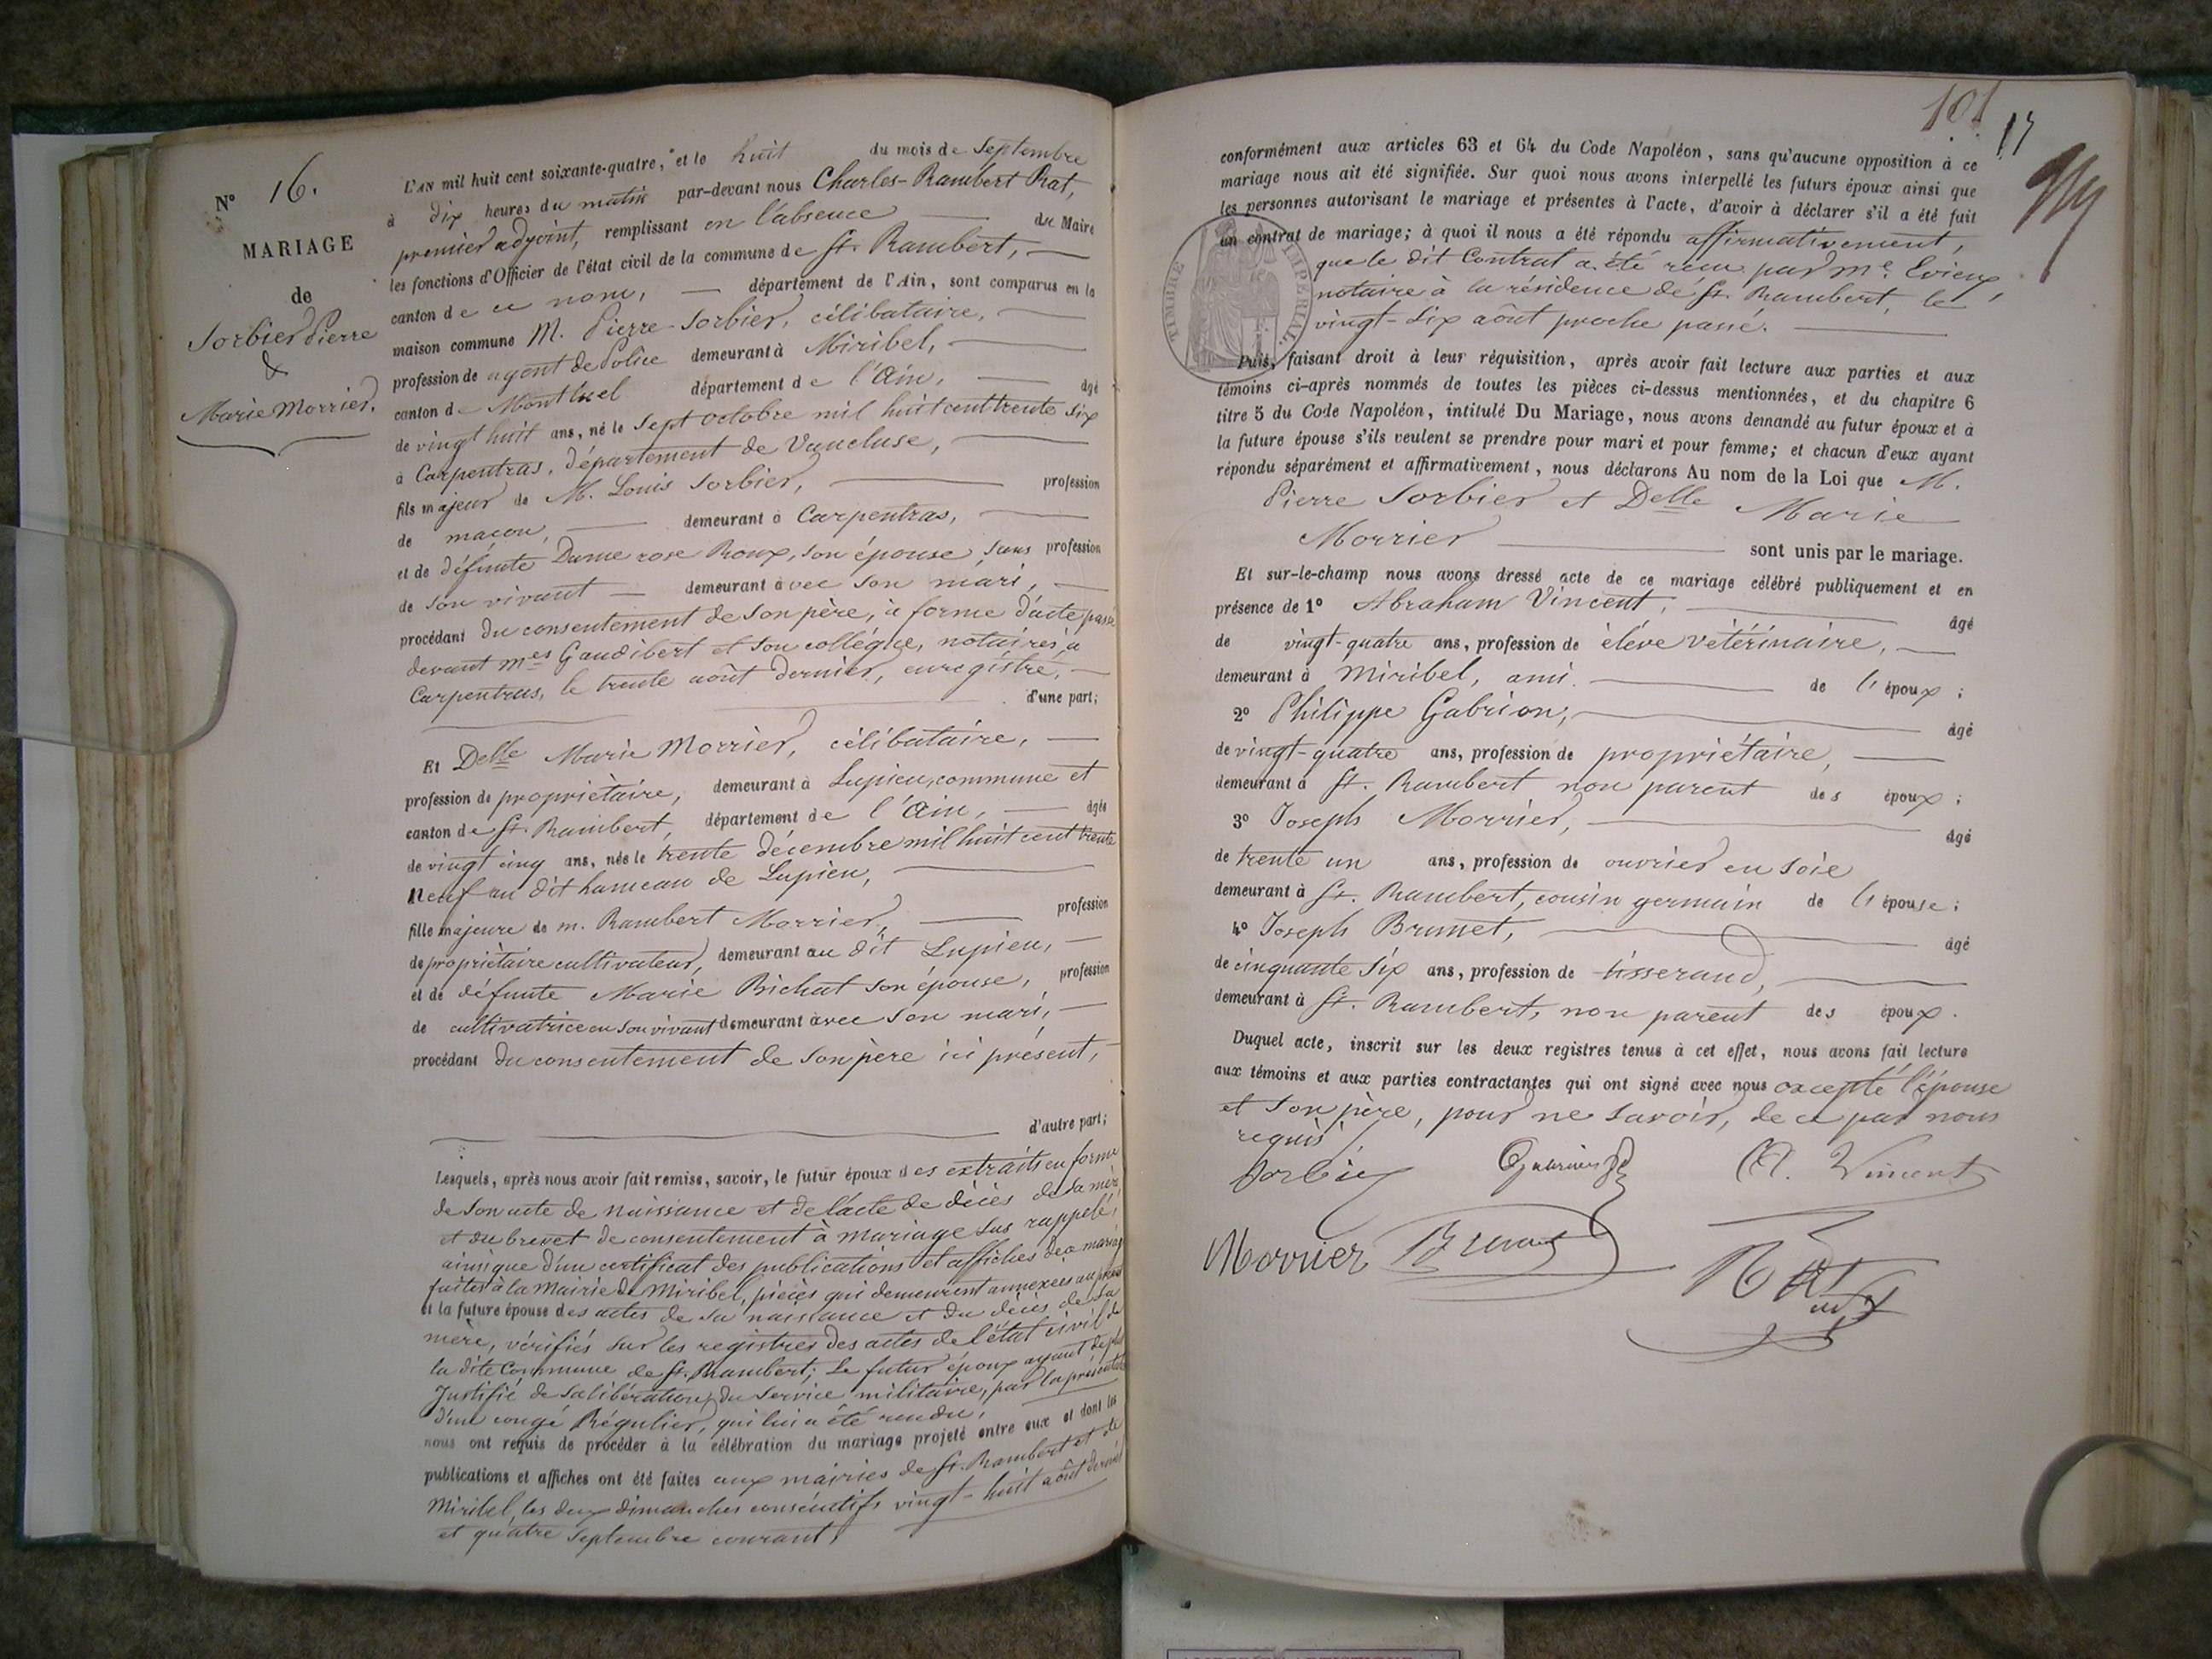 N° 16.
MARIAGE
de
Sorbier Pierre
&
Marie Morrier.
L'AN mil huit cent soixante-quatre, et le huit du mois de Septembre
à dix heures du matin par-devant nous Charles-Rambert Rat,
premier adjoint, remplissant en l'absence du Maire
les fonctions d'Officier de l'état civil de la commune de St. Rambert,
canton de ce nom, département de l'Ain, sont comparus en la
maison commune M. Pierre Sorbier, célibataire,
profession de agent de Police demeurant à Miribel,
canton de Montluel département de l'Ain, âgé
de vingt huit ans, né le Sept octobre mil huit cent trente six
à Carpentras, département de Vaucluse,
fils majeur de M. Louis Sorbier, profession
de maçon, demeurant à Carpentras,
et de défunte Dame rose Roux, son épouse, sans profession
de son vivant demeurant avec son mari,
procédant du consentement de son père, à forme d'acte passé
devant mes Gaudibert et son collégue, notaires à
Carpentras, le trente août dernier, enregistré,
d'une part;
Et Delle Marie Morrier, célibataire,
profession de propriètaire, demeurant à Lupieu, commune et
canton de St. Rambert, département de l'Ain, âgée
de vingt cinq ans, née le trente décembre mil huit cent trente
neuf au dit hameau de Lupieu,
fille majeure de m. Rambert Morrier, profession
de propriètaire cultivateur, demeurant au dit Lupieu,
et de défunte Marie Bichat son épouse, profession
de cultivatrice en son vivant demeurant avec son mari,
procédant du consentement de son père ici présent,
d'autre part;
Lesquels, après nous avoir fait remise, savoir, le futur époux des extraits en forme
de son acte de naissance et de l'acte de décès de sa mère
et du brevet de consentement à mariage sus rappelé,
ainsi que d'un certificat des publications et affiches de ce mariage
faites à la Mairie de Miribel, pièces qui demeurent annexées au présent
et la future épouse des actes de sa naissance et du décès de sa
mère, vérifiés sur les registres des actes de l'état civil de
la dite Commune de St. Rambert; Le futur époux ayant de plus
Justifié de sa libération du service militaire, par la présentation
d'un congé Régulier, qui lui a été rendu,
nous ont requis de procéder à la célébration du mariage projeté entre eux et dont les
publications et affiches ont été faites aux mairies de St. Rambert et de
Miribel, les deux dimanches consécutifs vingt-huit août dernier
et quatre Septembre courant,
101
17
conformément aux articles 63 et 64 du Code Napoléon, sans qu'aucune opposition à ce
mariage nous ait été signifiée. Sur quoi nous avons interpellé les futurs époux ainsi que
les personnes autorisant le mariage et présentes à l'acte, d'avoir à déclarer s'il a été fait
un contrat de mariage; à quoi il nous a été répondu affirmativement,
que le dit Contrat a été reçu par Me. Evieux,
notaire à la résidence de St. Rambert, le
vingt-six août proche passé.
TIMBRE IMPERIAL.
Puis, faisant droit à leur réquisition, après avoir fait lecture aux parties et aux
témoins ci-après nommés de toutes les pièces ci-dessus mentionnées, et du chapitre 6
titre 5 du Code Napoléon, intitulé Du Mariage, nous avons demandé au futur époux et à
la future épouse s'ils veulent se prendre pour mari et pour femme; et chacun d'eux ayant
répondu séparément et affirmativement, nous déclarons Au nom de la Loi que M.
Pierre Sorbier et Delle Marie
Morrier sont unis par le mariage.
Et sur-le-champ nous avons dressé acte de ce mariage célébré publiquement et en
présence de 1° Abraham Vincent, âgé
de vingt-quatre ans, profession de éléve vétérinaire,
demeurant à Miribel, ami de l'époux;
2° Philippe Gabrion, âgé
de vingt-quatre ans, profession de propriétaire,
demeurant à St. Rambert non parent des époux;
3° Joseph Morrier, âgé
de trente un ans, profession de ouvrier en soie
demeurant à St. Rambert, cousin germain de l'épouse;
4° Joseph Brunet, âgé
de cinquante six ans, profession de tisserand,
demeurant à St. Rambert, non parent des époux.
Duquel acte, inscrit sur les deux registres tenus à cet effet, nous avons fait lecture
aux témoins et aux parties contractantes qui ont signé avec nous excepté l'épouse
et son père, pour ne savoir, de ce par nous
requis.
Sorbier Gabrion A. Vincent
Morrier Brunet Rat